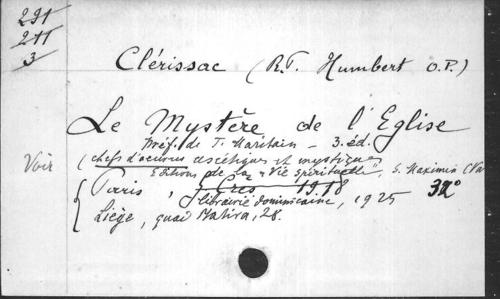 291
211
3
Clérissac (R.P. Humbert O.P.)
Le Mystère de l'Eglise
Préf. de J. Maritain — 3. éd.
Voir (chefs d'oeuvres ascétiques et mystiques
Editions de la "Vie Spirituelle", S. Maximin (Var
Paris, Crès 1918 32°
librairie dominicaine, 1925
Liège, quai Mativa, 28.